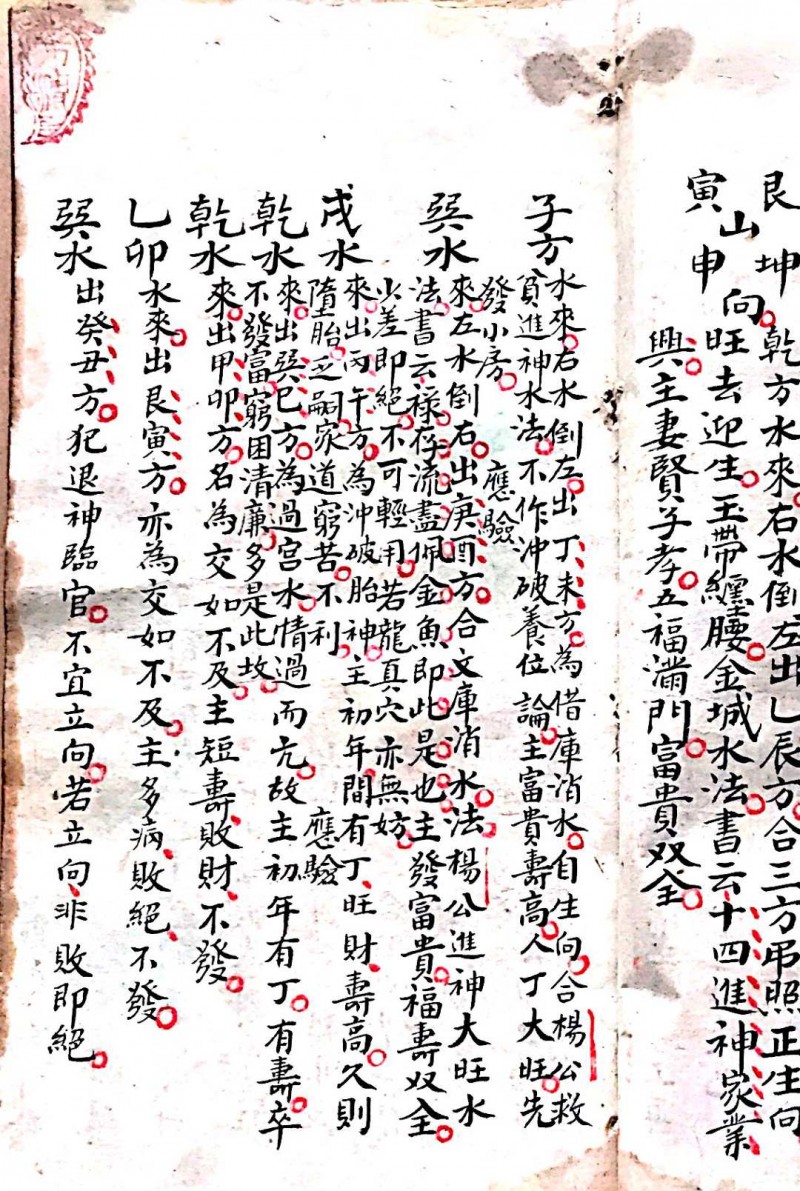 艮坤
山向
寅申
乾方水來右水倒左出乙辰方合三方吊照正生向
旺去迎生玉帶纏腰金城水法書云十四進神家業
興主妻賢子孝五福滿門富貴双全
子方水來右水倒左出丁未方為借庫消水自生向合楊公救
貧進神水法不作沖破養位論主富貴壽高人丁大旺先
發小房 應驗
巽水來左水倒右出庚酉方合文庫消水法楊公進神大旺水
法書云祿存流盡佩金魚即此是也主發富貴福壽双全
少差即絕不可輕用若龍真穴亦無妨
戌水來出丙午方為沖破胎神主初年間有丁旺財壽高久則
墮胎乏嗣家道窮苦不利 應驗
乾水來出巽巳方為過宮水情過而亢故主初年有丁有壽卒
不發富窮困清廉多是此故
乾水來出甲卯方名為交如不及主短壽敗財不發
乙卯水來出艮寅方亦為交如不及主多病敗絕不發
巽水出癸丑方犯退神臨官不宜立向若立向非敗即絕